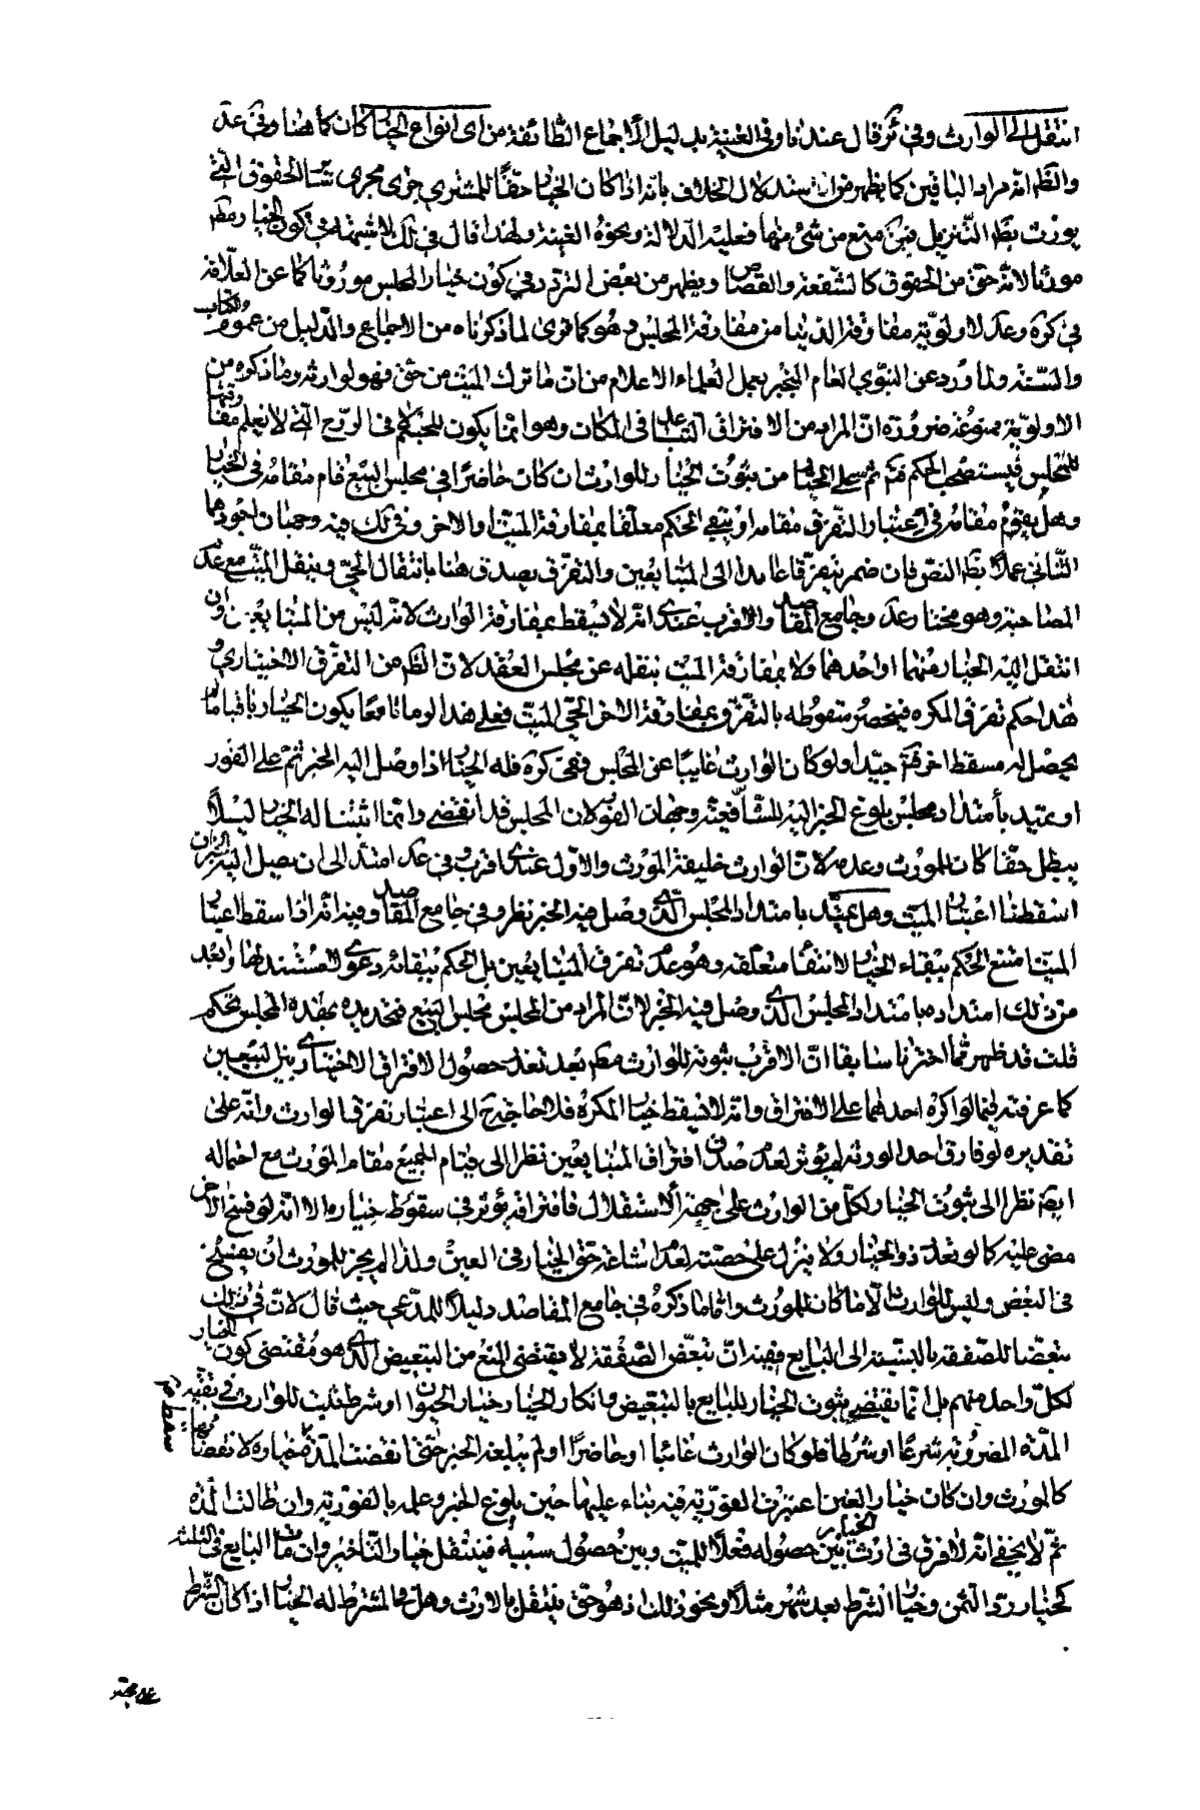 انتقل الى الوارث وفي كره قال عندنا وفي الغنية بدليل الاجماع الطائفة من اى انواع الخيار كان كما هنا وفي عد
والظم انه مراد الباقين كما يظهر من استدلال الخلاف بانه اذا كان الخيار حقا للمشتري جرى مجرى سائر الحقوق التي
يورث بظم التنزيل فمن منع من شئ منها فعليه الدلالة ونحوه الغنية ولهذا قال في لك لا شبهة في كون الخيار مطم
موروثا لانه حق من الحقوق كالشفعة والقصاص ويظهر من بعض التردد في كون خيار المجلس موروثا كما عن العلامة
في كره وعد لاولوية مفارقة الدنيا من مفارقة المجلس وهو كما ترى لما ذكرناه من الاجماع والدليل من عموم الكتاب
والسنة ولما ورد عن النبوي العام المنجبر بعمل العلماء الاعلام من ان ما ترك الميت من حق فهو لوارثه وما ذكروه من
الاولوية ممنوعة ضرورة ان المراد من الافتراق التباعد في المكان وهو انما يكون للجسم لا في الروح التي لا يعلم مفارقتها
للمجلس فيستصحب الحكم ثم على المختار من ثبوت الخيار للوارث ان كان حاضرا في مجلس البيع قام مقامه في الخيار
وهل يقوم مقامه في اعتبار التفرق مقامه او يبقى الحكم معلقا بمفارقة الميت او الاخر وفي لك فيه وجهان اجودهما
الثاني عملا بظم النص فان ضمير يتفرقا عايدا الى المتبايعين والتفرق يصدق هنا بانتقال الحي وبنقل الميت مع عد
المصاحبة وهو مختار عد وجامع المقاصد والاقرب عندى انه لا يسقط بمفارقة الوارث لانه ليس من المتبايعين وان
انتقل اليه الخيار منهما او احدهما ولا بمفارقة الميت بنقله عن مجلس العقد لان الظم من التفرق الاختياري و
هذا حكم تفرق المكره فينحصر سقوطه بالتفرق بمفارقة الاخر الحي للميت فعلى هذا لو ماتا معا يكون الخيار باقيا ما لم
يحصل له مسقط اخر جيدا ولو كان الوارث غايبا عن المجلس ففي كره فله الخيار اذا وصل اليه الخبر ثم على الفور
او يمتد بامتداد مجلس بلوغ الخبر اليه للشافعية وجهان الفور لان المجلس قد انقضى وانما اثبتنا له الخيار لئلا
يبطل حقا كان للمورث وعدمه لان الوارث خليفة المورث والاول عندى اقرب وفي عد امتد الى ان يصل اليه الخبر ان
اسقطنا اعتبار الميت وهل يمتد بامتداد المجلس الذى وصل فيه الخبر نظر وفي جامع المقاصد وفيه انه اذا سقط اعتبار
الميت امتنع الحكم ببقاء الخيار لانتفاء متعلقه وهو عدم تفرق المتبايعين بل الحكم ببقائه دعوى لا مستند لها وابعد
من ذلك امتداده بامتداد المجلس الذى وصل فيه الخبر لان المراد من المجلس مجلس البيع فتحديده بهذه المجلس تحكم
قلت قد ظهر مما اخترنا سابقا ان الاقرب ثبوته للوارث مطم بعد تعذر حصول الافتراق الاختيارى بين البيعين
كما عرفته فيما لو اكره احدهما على الافتراق وانه لا يسقط خيار المكره فلا حاجة ح الى اعتبار تفرق الوارث وانه على
تقديره لو فارق احد الورثة لم يؤثر لعدم صدق افتراق المتبايعين نظرا الى قيام الجميع مقام المورث مع احتماله
ايضا نظرا الى ثبوت الخيار لكل من الوارث على جهة الاستقلال فافتراقه يؤثر في سقوط خياره الا انه لو فسخ الاخر
مضى عليه كما لو تعدد ذو الخيار ولا ينزل على حصته لعدم اشاعة حق الخيار في العين ولذا لم يجز للمورث ان يفسخ
في البعض وليس للوارث الا ما كان للمورث واما ما ذكره في جامع المقاصد دليلا للمدعى حيث قال لان في ذلك
تبعضا للصفقة بالنسبة الى البايع ففيه ان تبعض الصفقة لا يقتضى المنع من التبعيض الذى هو مقتضى كون الخيار
لكل واحد منهم بل انما يقتضى ثبوت الخيار للبايع بالتبعيض وان كان الخيار خيار الحيوان او شرط ثبت للوارث في بقية
المدة المضروبة شرعا او شرطا فلو كان الوارث غائبا او حاضرا ولم يبلغه الخبر حتى انقضت المدة سقط خياره لانقضائها
كالمورث وان كان خيار الغبن اعتبرت الفورية فيه بناء عليها حين بلوغ الخبر وعلمه بالفورية وان طالت المدة
ثم لا يخفى انه لا فرق في ارث الخيار بين حصوله فعلا للميت وبين حصول سببه فينتقل خيار التأخير وان مات البايع في الثلثة
كخيار رد الثمن وخيار الشرط بعد شهر مثلا ونحو ذلك اذ هو حق ينتقل بالارث وهل المشترط له الخيار اذا كان الشرط